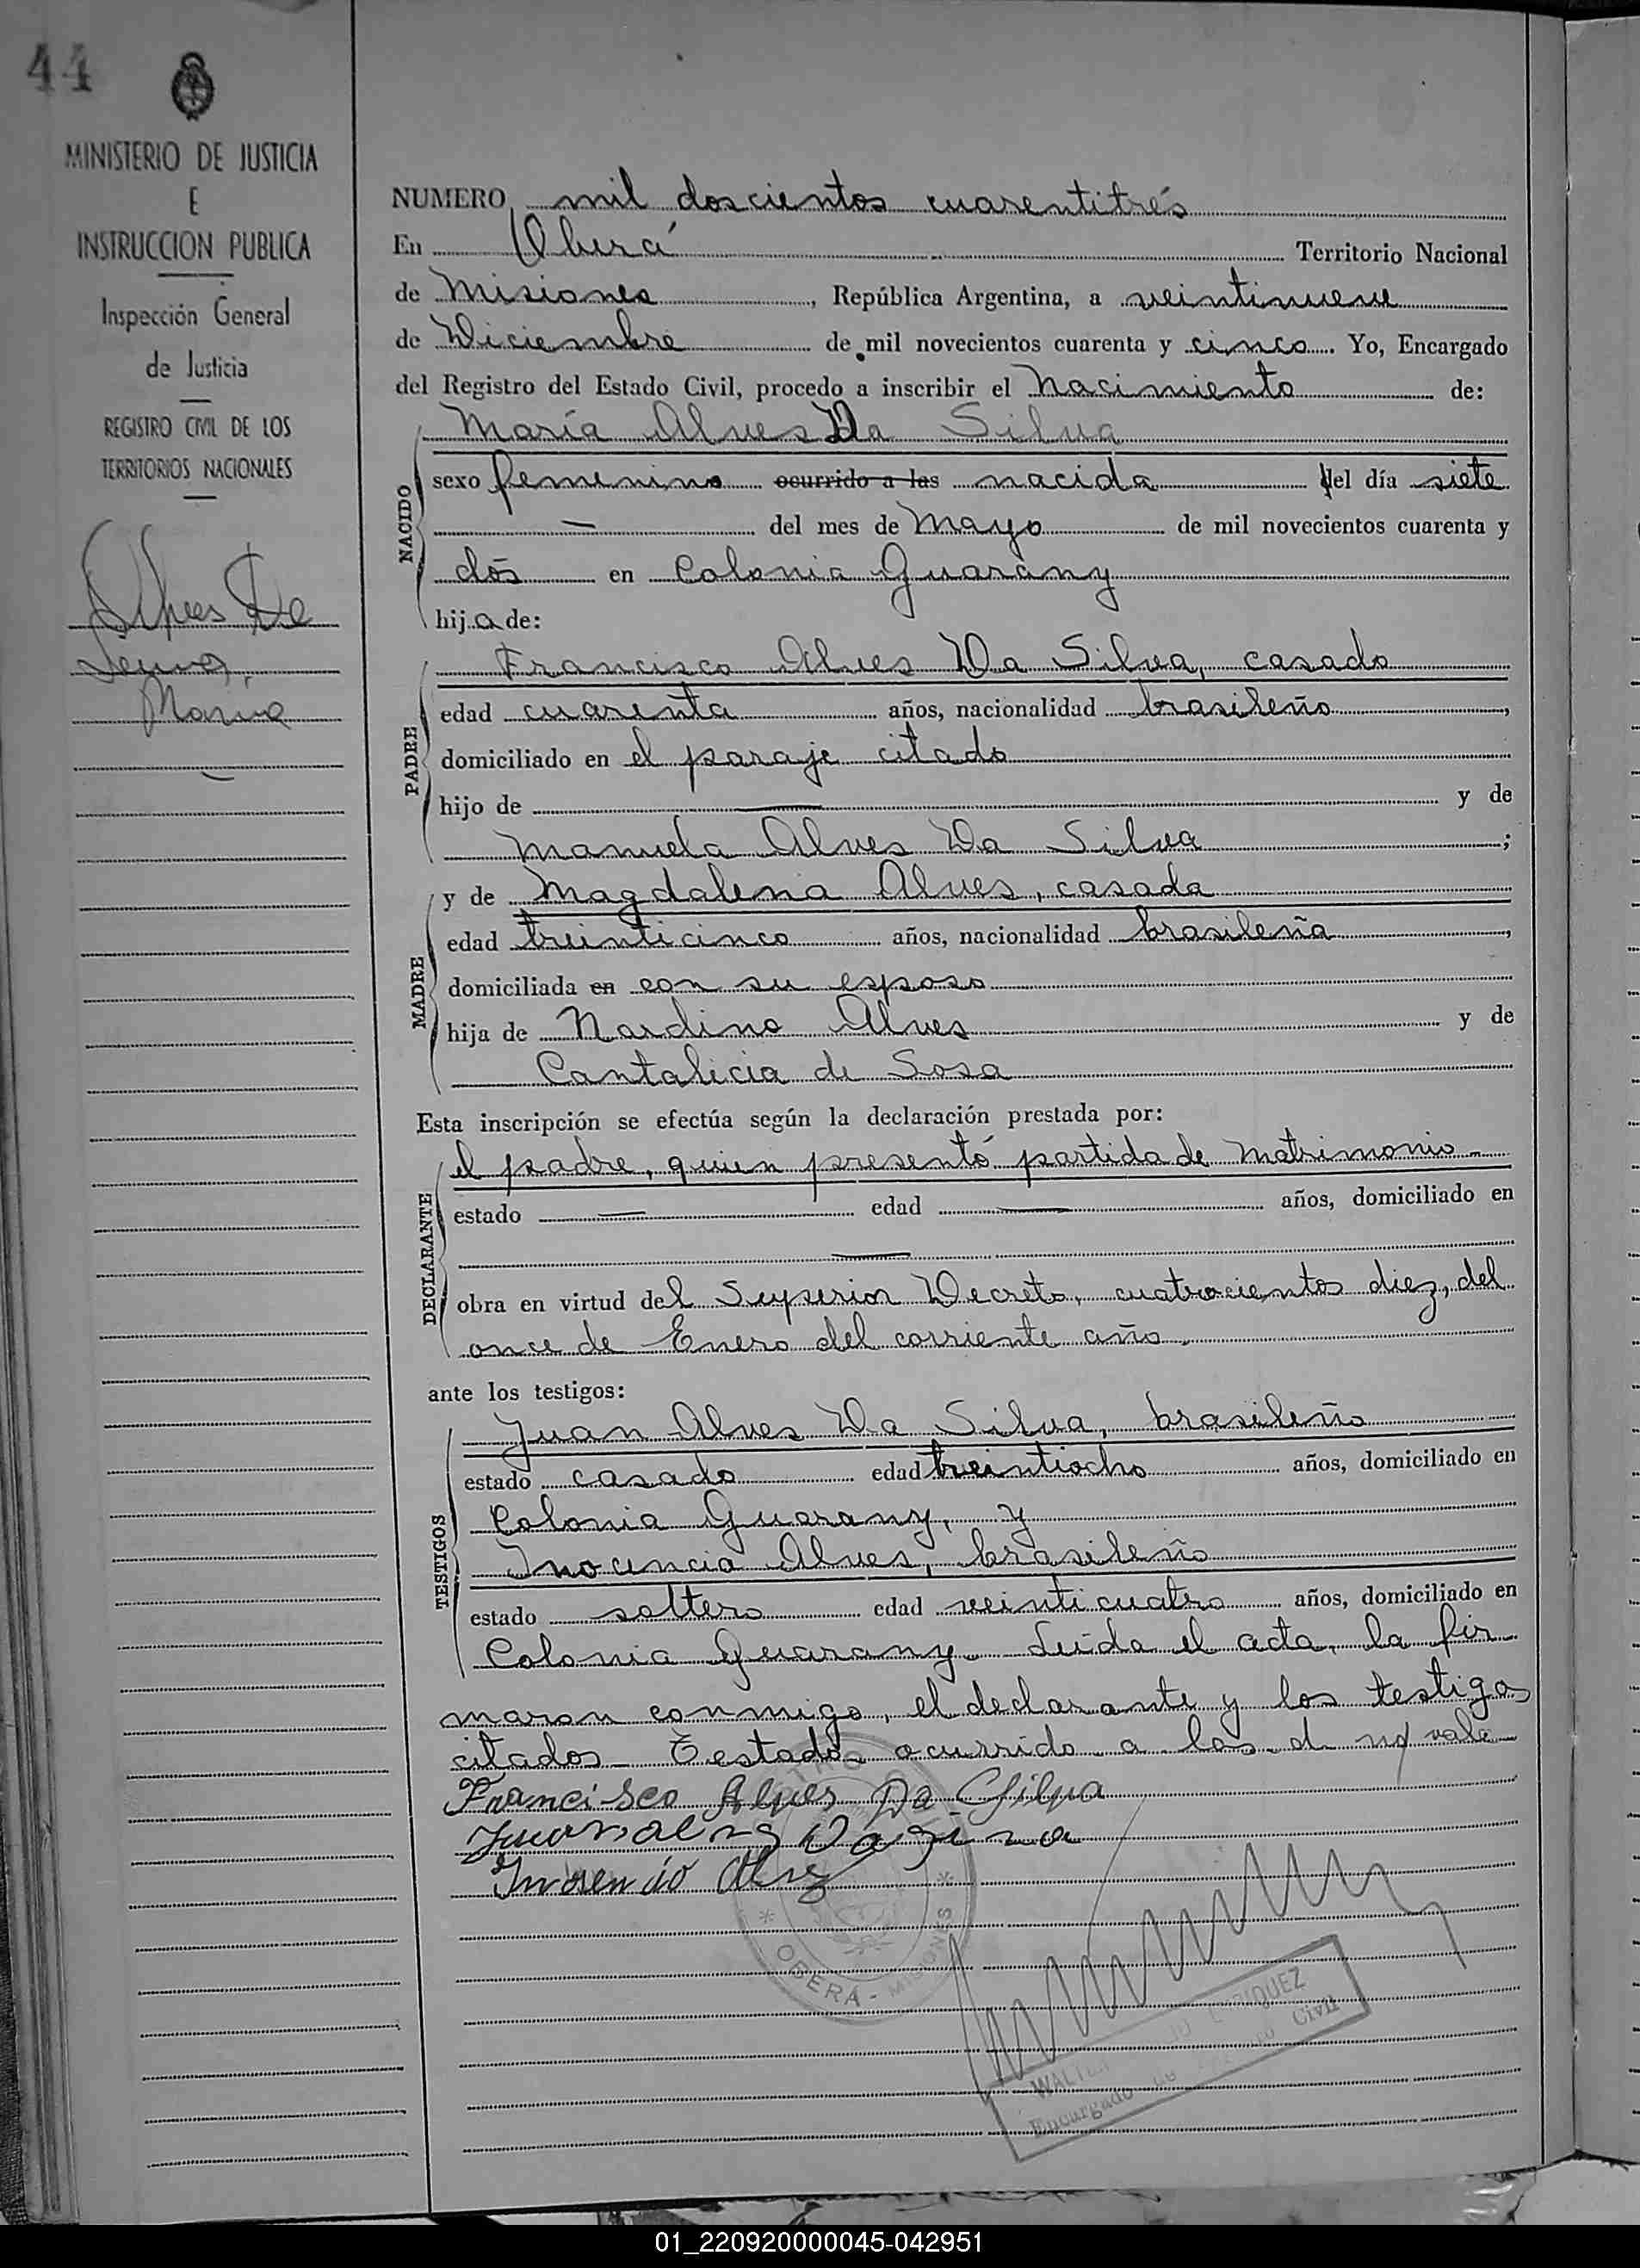 44
MINISTERIO DE JUSTICIA
E
INSTRUCCION PUBLICA
Inspección General
de Justicia
REGISTRO CIVIL DE LOS
TERRITORIOS NACIONALES
Alves Da
María
NUMERO mil doscientos cuarentitrés
En Oberá Territorio Nacional
de Misiones, República Argentina, a veintinueve
de Diciembre de mil novecientos cuarenta y cinco. Yo, Encargado
del Registro del Estado Civil, procedo a inscribir el Nacimiento de:
María Alves Da Silva
NACIDO
sexo femenino ocurrido a las nacida del día siete
— del mes de Mayo de mil novecientos cuarenta y
dós en Colonia Guarany
hija de:
PADRE
Francisco Alves Da Silva, casado
edad cuarenta años, nacionalidad brasileño,
domiciliado en el paraje citado
hijo de — y de
Manuela Alves Da Silva;
MADRE
y de Magdalena Alves, casada
edad treinticinco años, nacionalidad brasileña,
domiciliada en con su esposo
hija de Nardino Alves y de
Cantalicia de Sosa
Esta inscripción se efectúa según la declaración prestada por:
DECLARANTE
el padre, quien presentó partida de matrimonio -
estado — edad — años, domiciliado en
—
obra en virtud del Superior Decreto, cuatrocientos diez, del
once de Enero del corriente año.
ante los testigos:
TESTIGOS
Juan Alves Da Silva, brasileño
estado casado edad treintiocho años, domiciliado en
Colonia Guarany, y
Inocencio Alves, brasileño
estado soltero edad veinticuatro años, domiciliado en
Colonia Guarany. Leída el acta, la fir-
maron conmigo, el declarante y los testigos
citados- Testado ocurrido a las d no vale
Francisco Alves Da Silva
OBERA - MISIONES
WALTER ENRIQUEZ
Encargado Civil
01_220920000045-042951